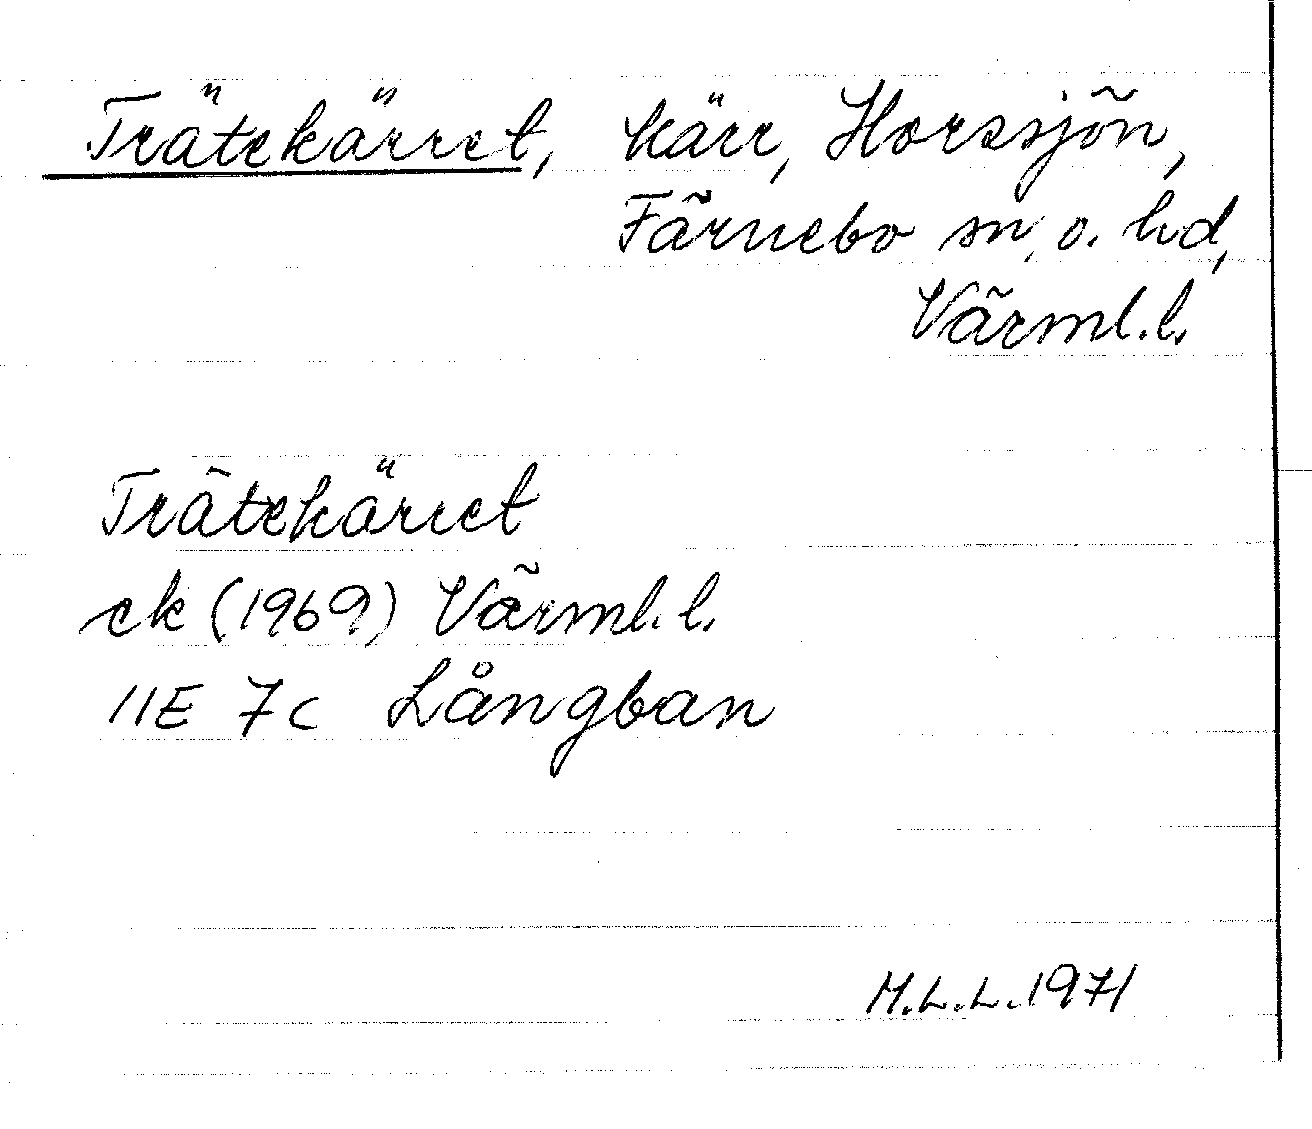 Trätekärret, kärr, Horssjön,
Färnebo sn, o. hd,
Värml.l.
Trätekärret
ek (1969) Värml.l.
11E 7c Långban
M.L.L. 1971